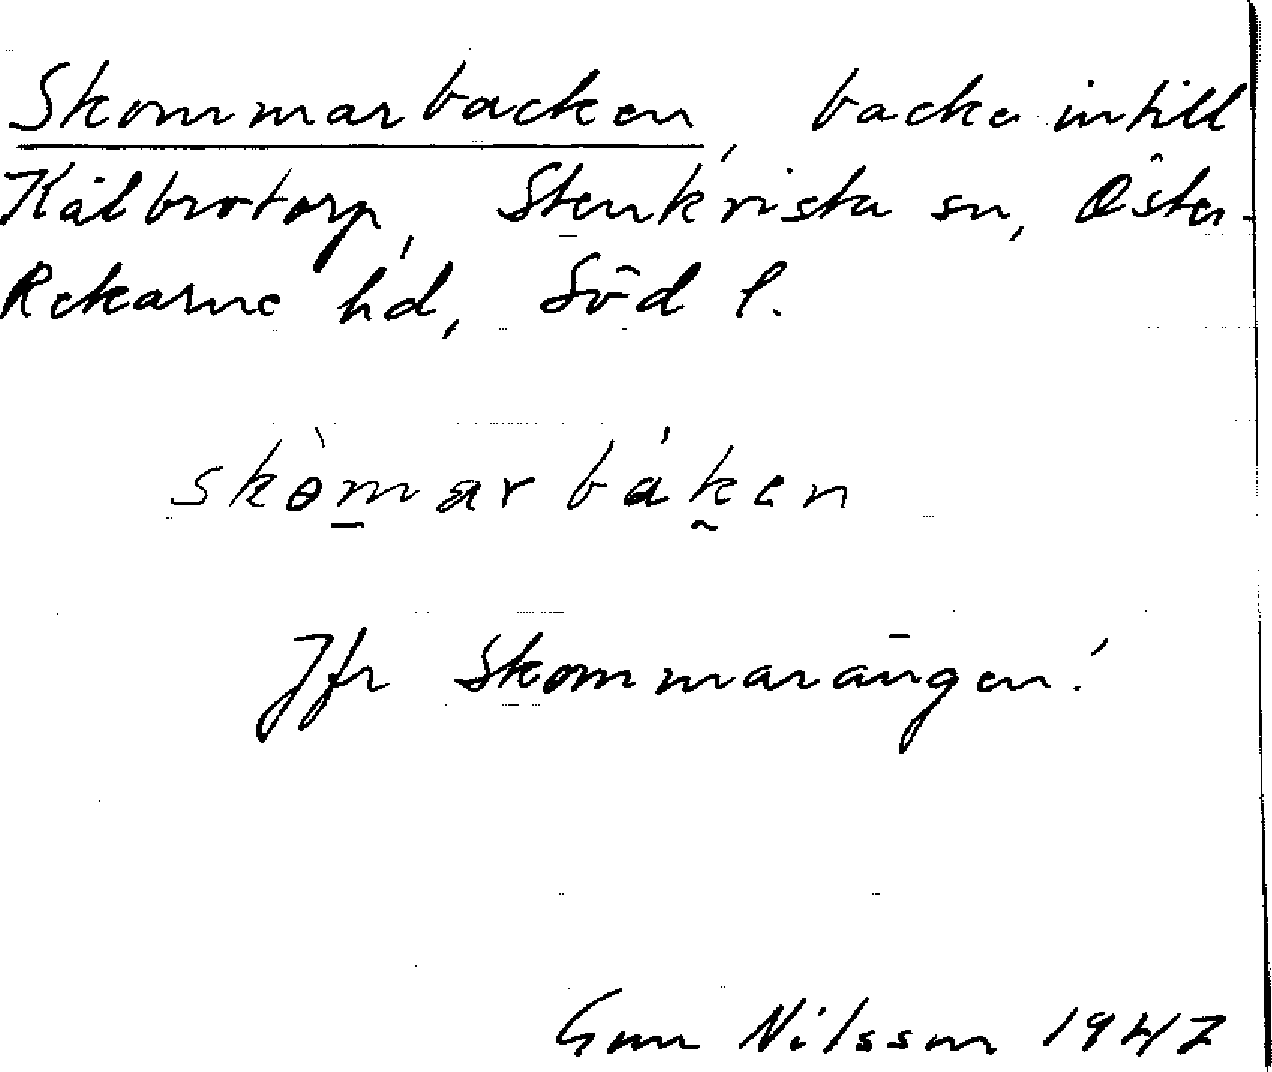 Skommarbacken, backe intill
Kålbrotorp, Stenkvista sn, Öster-
Rekarne hd, Söd l.
skòmarbáken
Jfr Skommarängen!
Gun Nilsson 1947